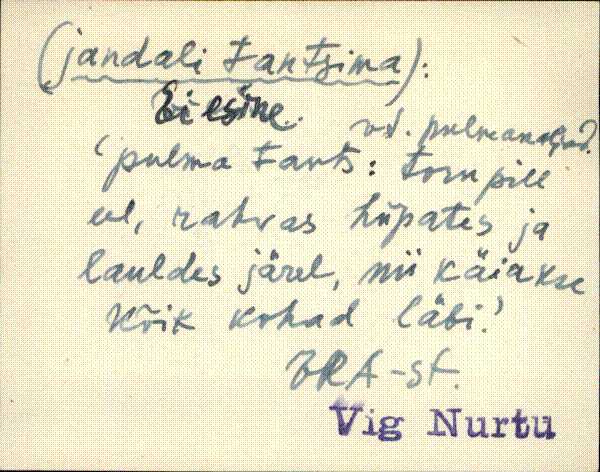 (jandali tantsima):
Ei esine.
vt. pulmanaljad.
'pulma tants: torupill
eel, rahvas hüpates ja
lauldes järel, nii käiakse
kõik kohad läbi.'
ERA-st.
Vig Nurtu